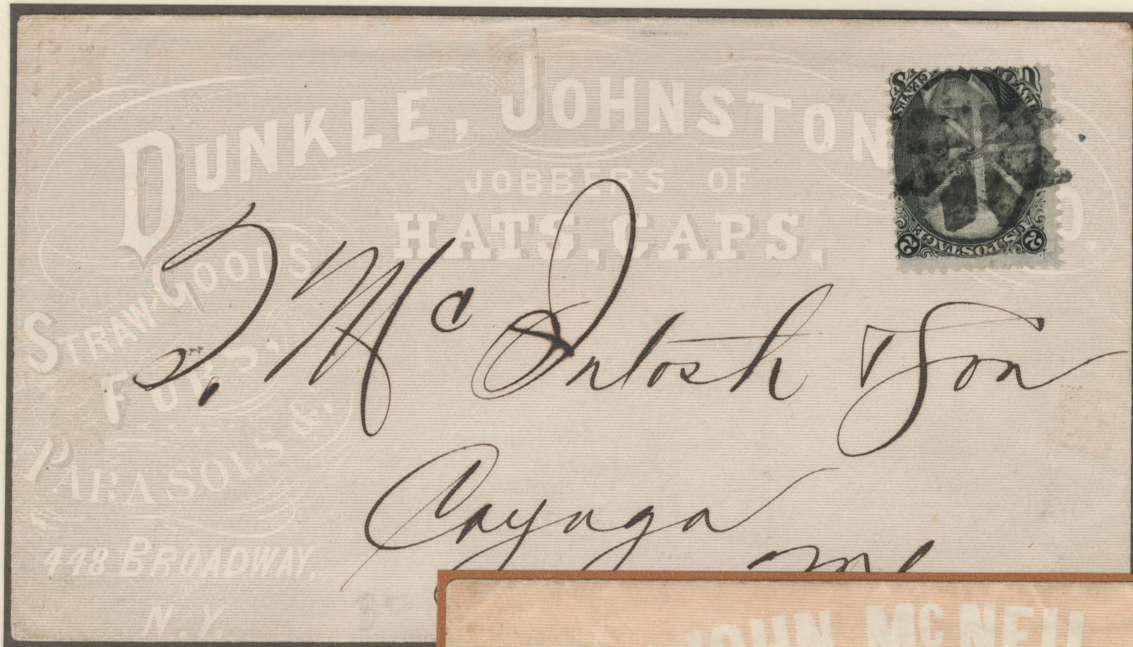 DUNKLE, JOHNSTON
JOBBERS OF
HATS, CAPS,
STRAW GOODS
FURS,
PARASOLS &.
448 BROADWAY,
N.Y.
2 CENTS
U.S. POSTAGE
J. Mc Intosh & Son
Cayuga
JOHN McNEIL